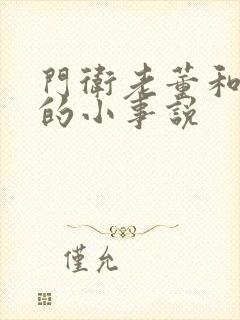 門衛老董和
的小事説
僅允